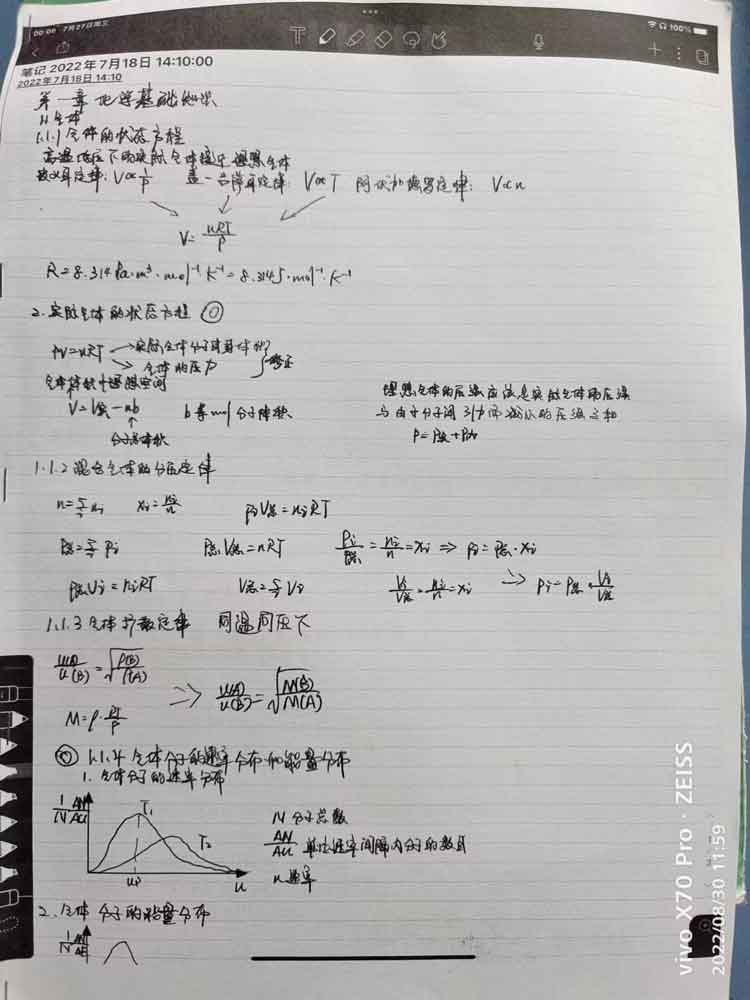 00:06 7月27日周三
100%
笔记 2022年7月18日 14:10:00
2022年7月18日 14:10
第一章 化学基础知识
1.1 气体
1.1.1 气体的状态方程
高温低压下的实际气体接近理想气体
波义耳定律: V∝1/P 盖-吕萨克定律: V∝T 阿伏加德罗定律: V∝n
V=nRT/P
R=8.314Pa·m³·mol⁻¹·K⁻¹=8.314J·mol⁻¹·K⁻¹
2. 实际气体的状态方程
PV=nRT → 实际气体分子自身体积
→ 气体的压力 修正
V=V实-nb b为mol分子体积
分子总体积
理想气体的压强应该是实际气体的压强
与由于分子间引力而减小的压强之和
P=P实+P内
1.1.2 混合气体的分压定律
n=Σni xi=ni/n piV总=niRT
p总=Σpi p总V总=nRT pi/p总=ni/n=xi ⇒ pi=p总·xi
p总Vi=niRT V总=ΣVi Vi/V总=ni/n=xi ⇒ pi=p总·Vi/V总
1.1.3 气体扩散定律 同温同压下
u(A)/u(B)=√(ρ(B)/ρ(A))
⇒ u(A)/u(B)=√(M(B)/M(A))
M=ρ·RT/P
1.1.4 气体分子的速率分布和能量分布
1. 气体分子的速率分布
1/N ΔN/Δu T₁ T₂ up u
N 分子总数
ΔN/Δu 单位速率间隔内分子的数目
u 速率
2. 气体分子的能量分布
1/N ΔN/ΔE
vivo X70 Pro · ZEISS
2022/08/30 11:59